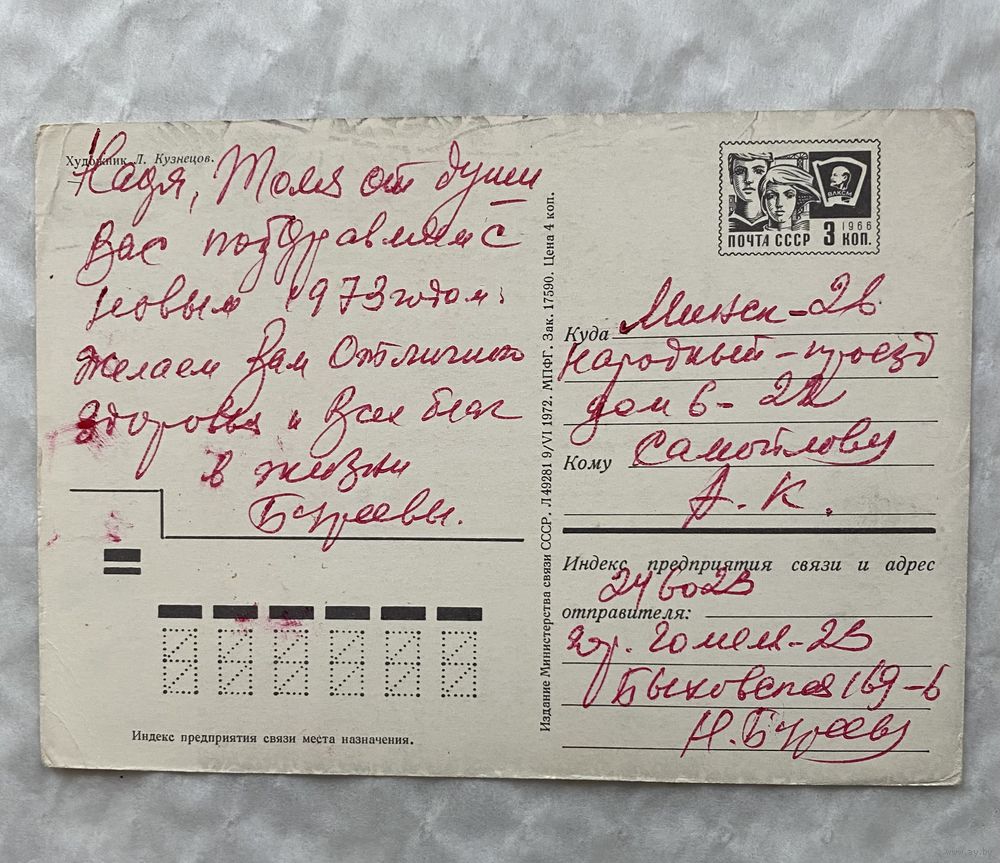 Художник Л. Кузнецов.
Надя, Толя от души
Вас поздравляем с
новым 1973 годом.
Желаем Вам отличного
здоровья и всех благ
в жизни
Бугаевы.
Индекс предприятия связи места назначения.
Издание Министерства связи СССР. Л 49281 9/VI 1972. МПФГ. Зак. 17590. Цена 4 коп.
ВЛКСМ
1966
ПОЧТА СССР 3 КОП.
Куда Минск-28
Народный-проезд
дом 6-22
Кому Самойлову
А. К.
Индекс предприятия связи и адрес
246023
отправителя:
гор. Гомель-23
Быховская 169-6
Н. Бугаеву
www.ay.by